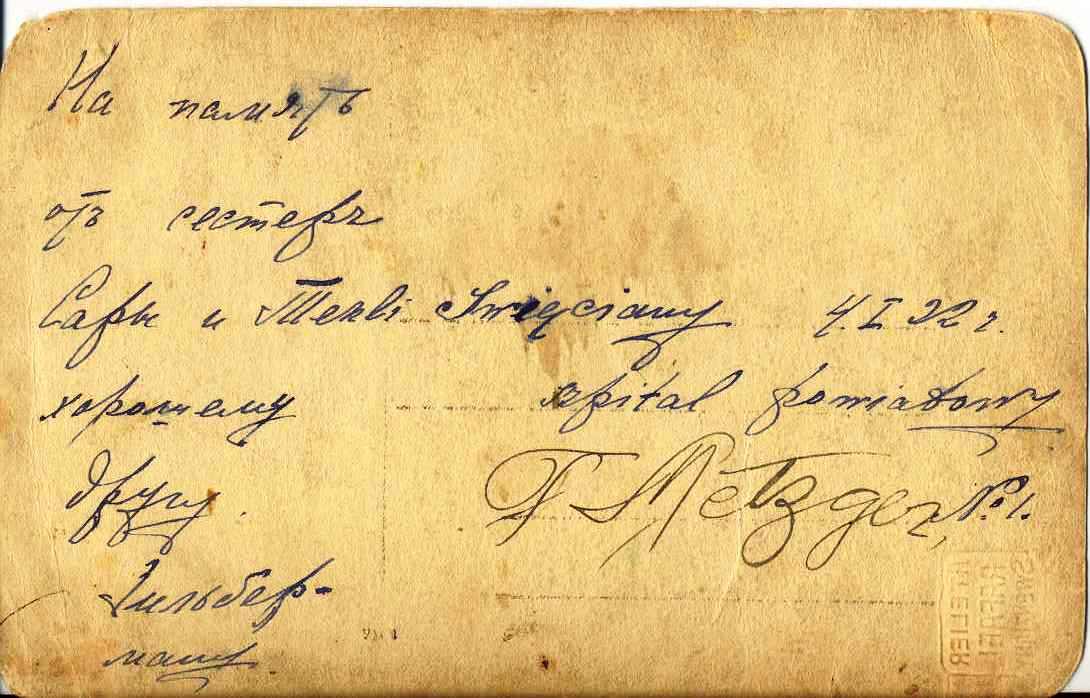 На память
отъ сестеръ
Сары и Тekli Święciany 4.I 22 г.
хорошему
szpital powiatowy
другу
F Metzger, No 1.
Гильбер-
ману
ATELIER